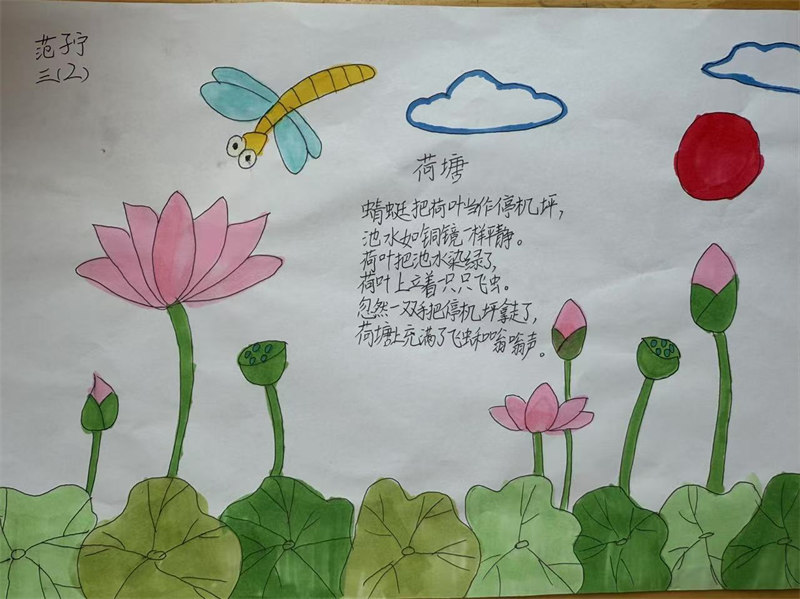 范子宁
三(2)
荷塘
蜻蜓把荷叶当作停机坪,
池水如铜镜一样平静。
荷叶把池水染绿了,
荷叶上立着只只飞虫。
忽然一双手把停机坪拿走了,
荷塘上充满了飞虫和嗡嗡声。